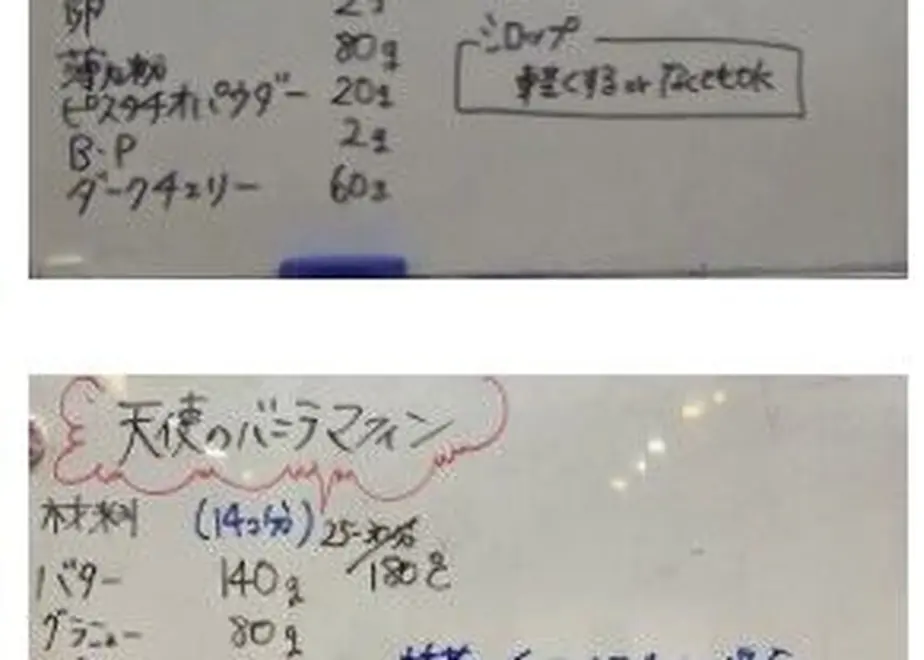 卵
薄力粉 80g
ピスタチオパウダー 20g
B・P 2g
ダークチェリー 60g
シロップ
軽くする or なくてもok
天使のバニラマフィン
材料 (14コ分) 25-30分
バター 140g 180℃
グラニュー 80g